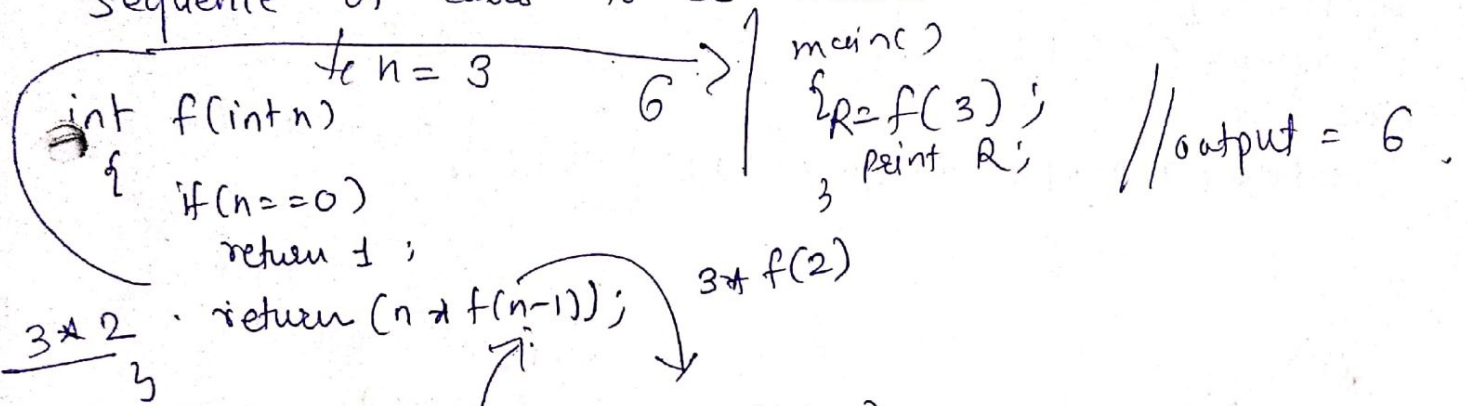 n = 3
int f(int n)
{
if(n==0)
return 1;
return (n * f(n-1));
}
3*2
6
main()
{R=f(3);
print R;
}
//output = 6.
3* f(2)